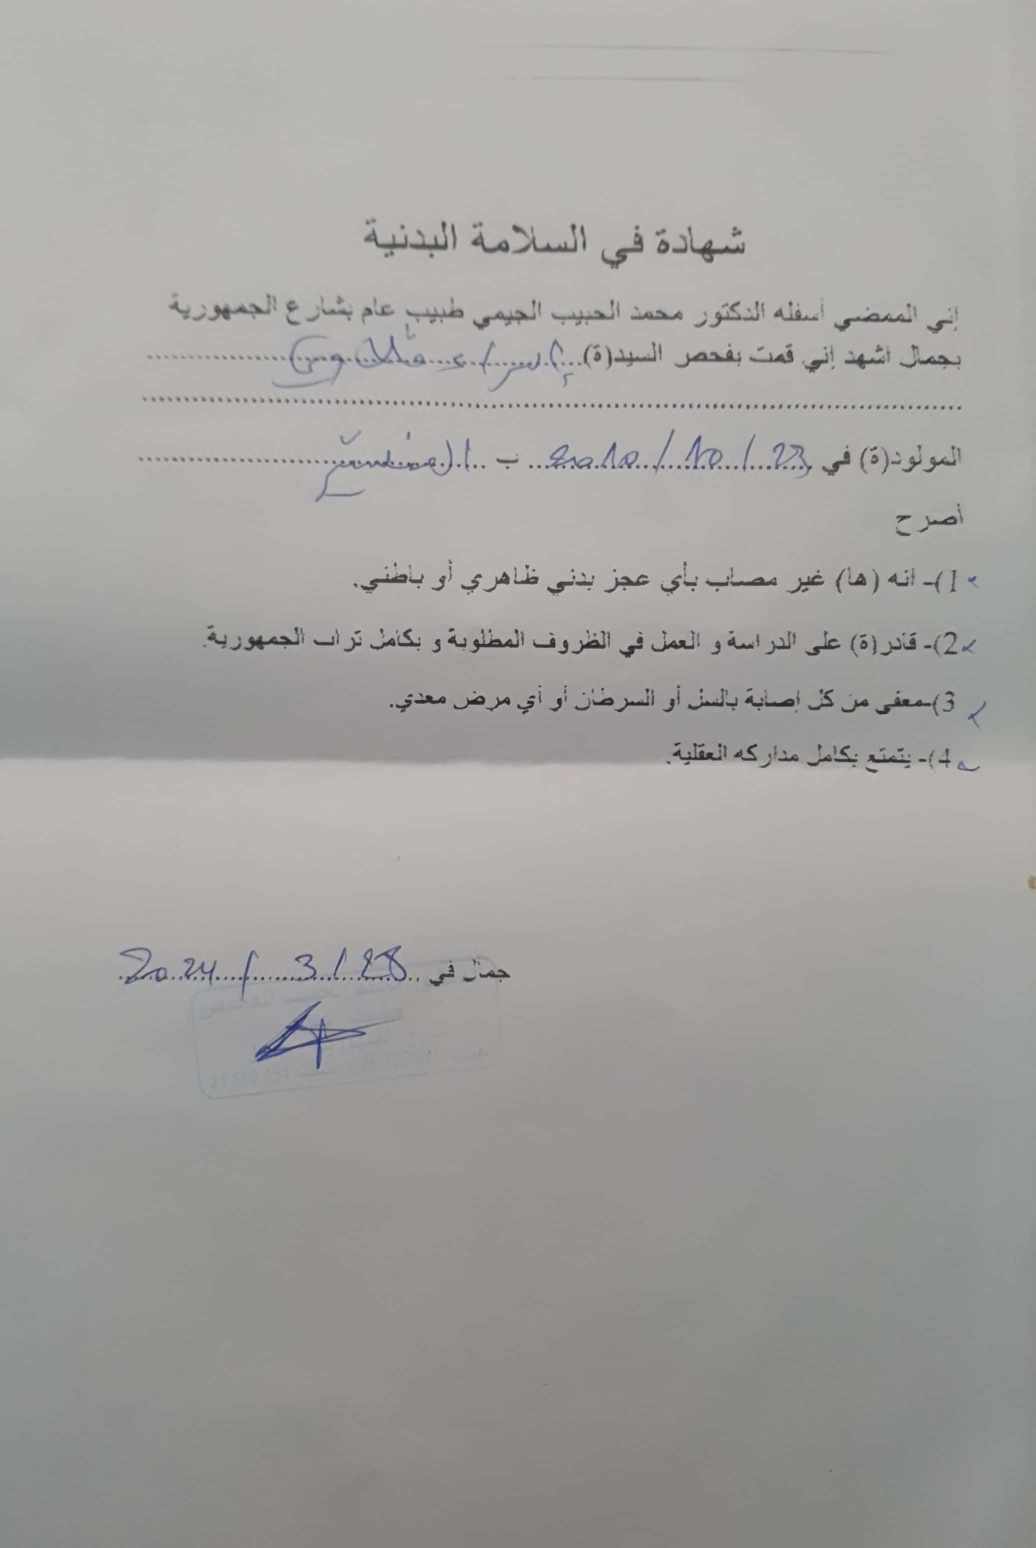 شهادة في السلامة البدنية
إني الممضي أسفله الدكتور محمد الحبيب الجيمي طبيب عام بشارع الجمهورية
بجمال اشهد إني قمت بفحص السيد(ة)
المولود(ة) في 23 / 10 / 2010 ب
أصرح
1)- انه (ها) غير مصاب بأي عجز بدني ظاهري أو باطني.
2)- قادر(ة) على الدراسة و العمل في الظروف المطلوبة و بكامل تراب الجمهورية.
3)-معفى من كل إصابة بالسل أو السرطان أو أي مرض معدي.
4)- يتمتع بكامل مداركه العقلية.
جمال في 28 / 3 / 2024